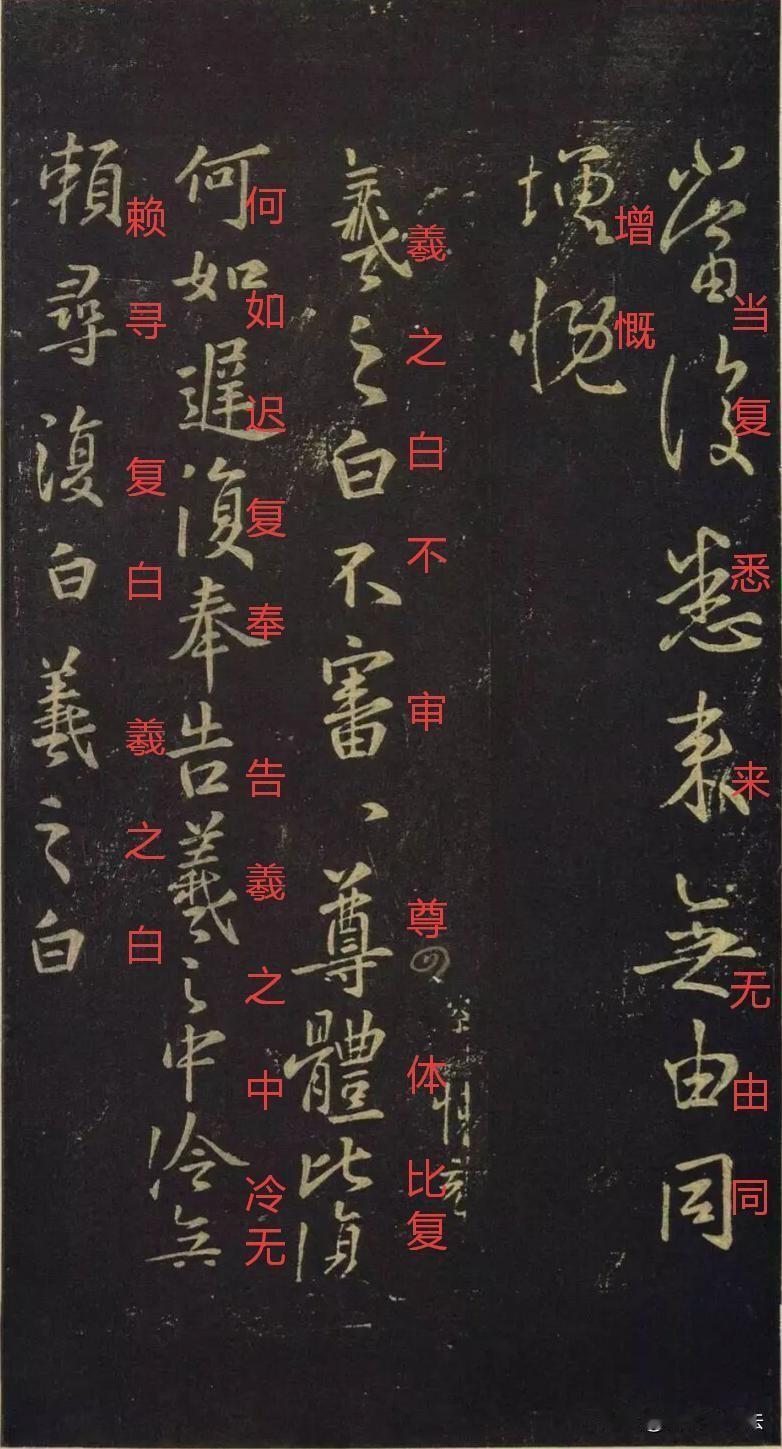 當復悉來無由同
当复悉来无由同
增慨
增慨
羲之白不審、尊體比復
羲之白不审尊体比复
何如遲復奉告羲之中冷無
何如迟复奉告羲之中冷无
賴尋復白羲之白
赖寻复白羲之白